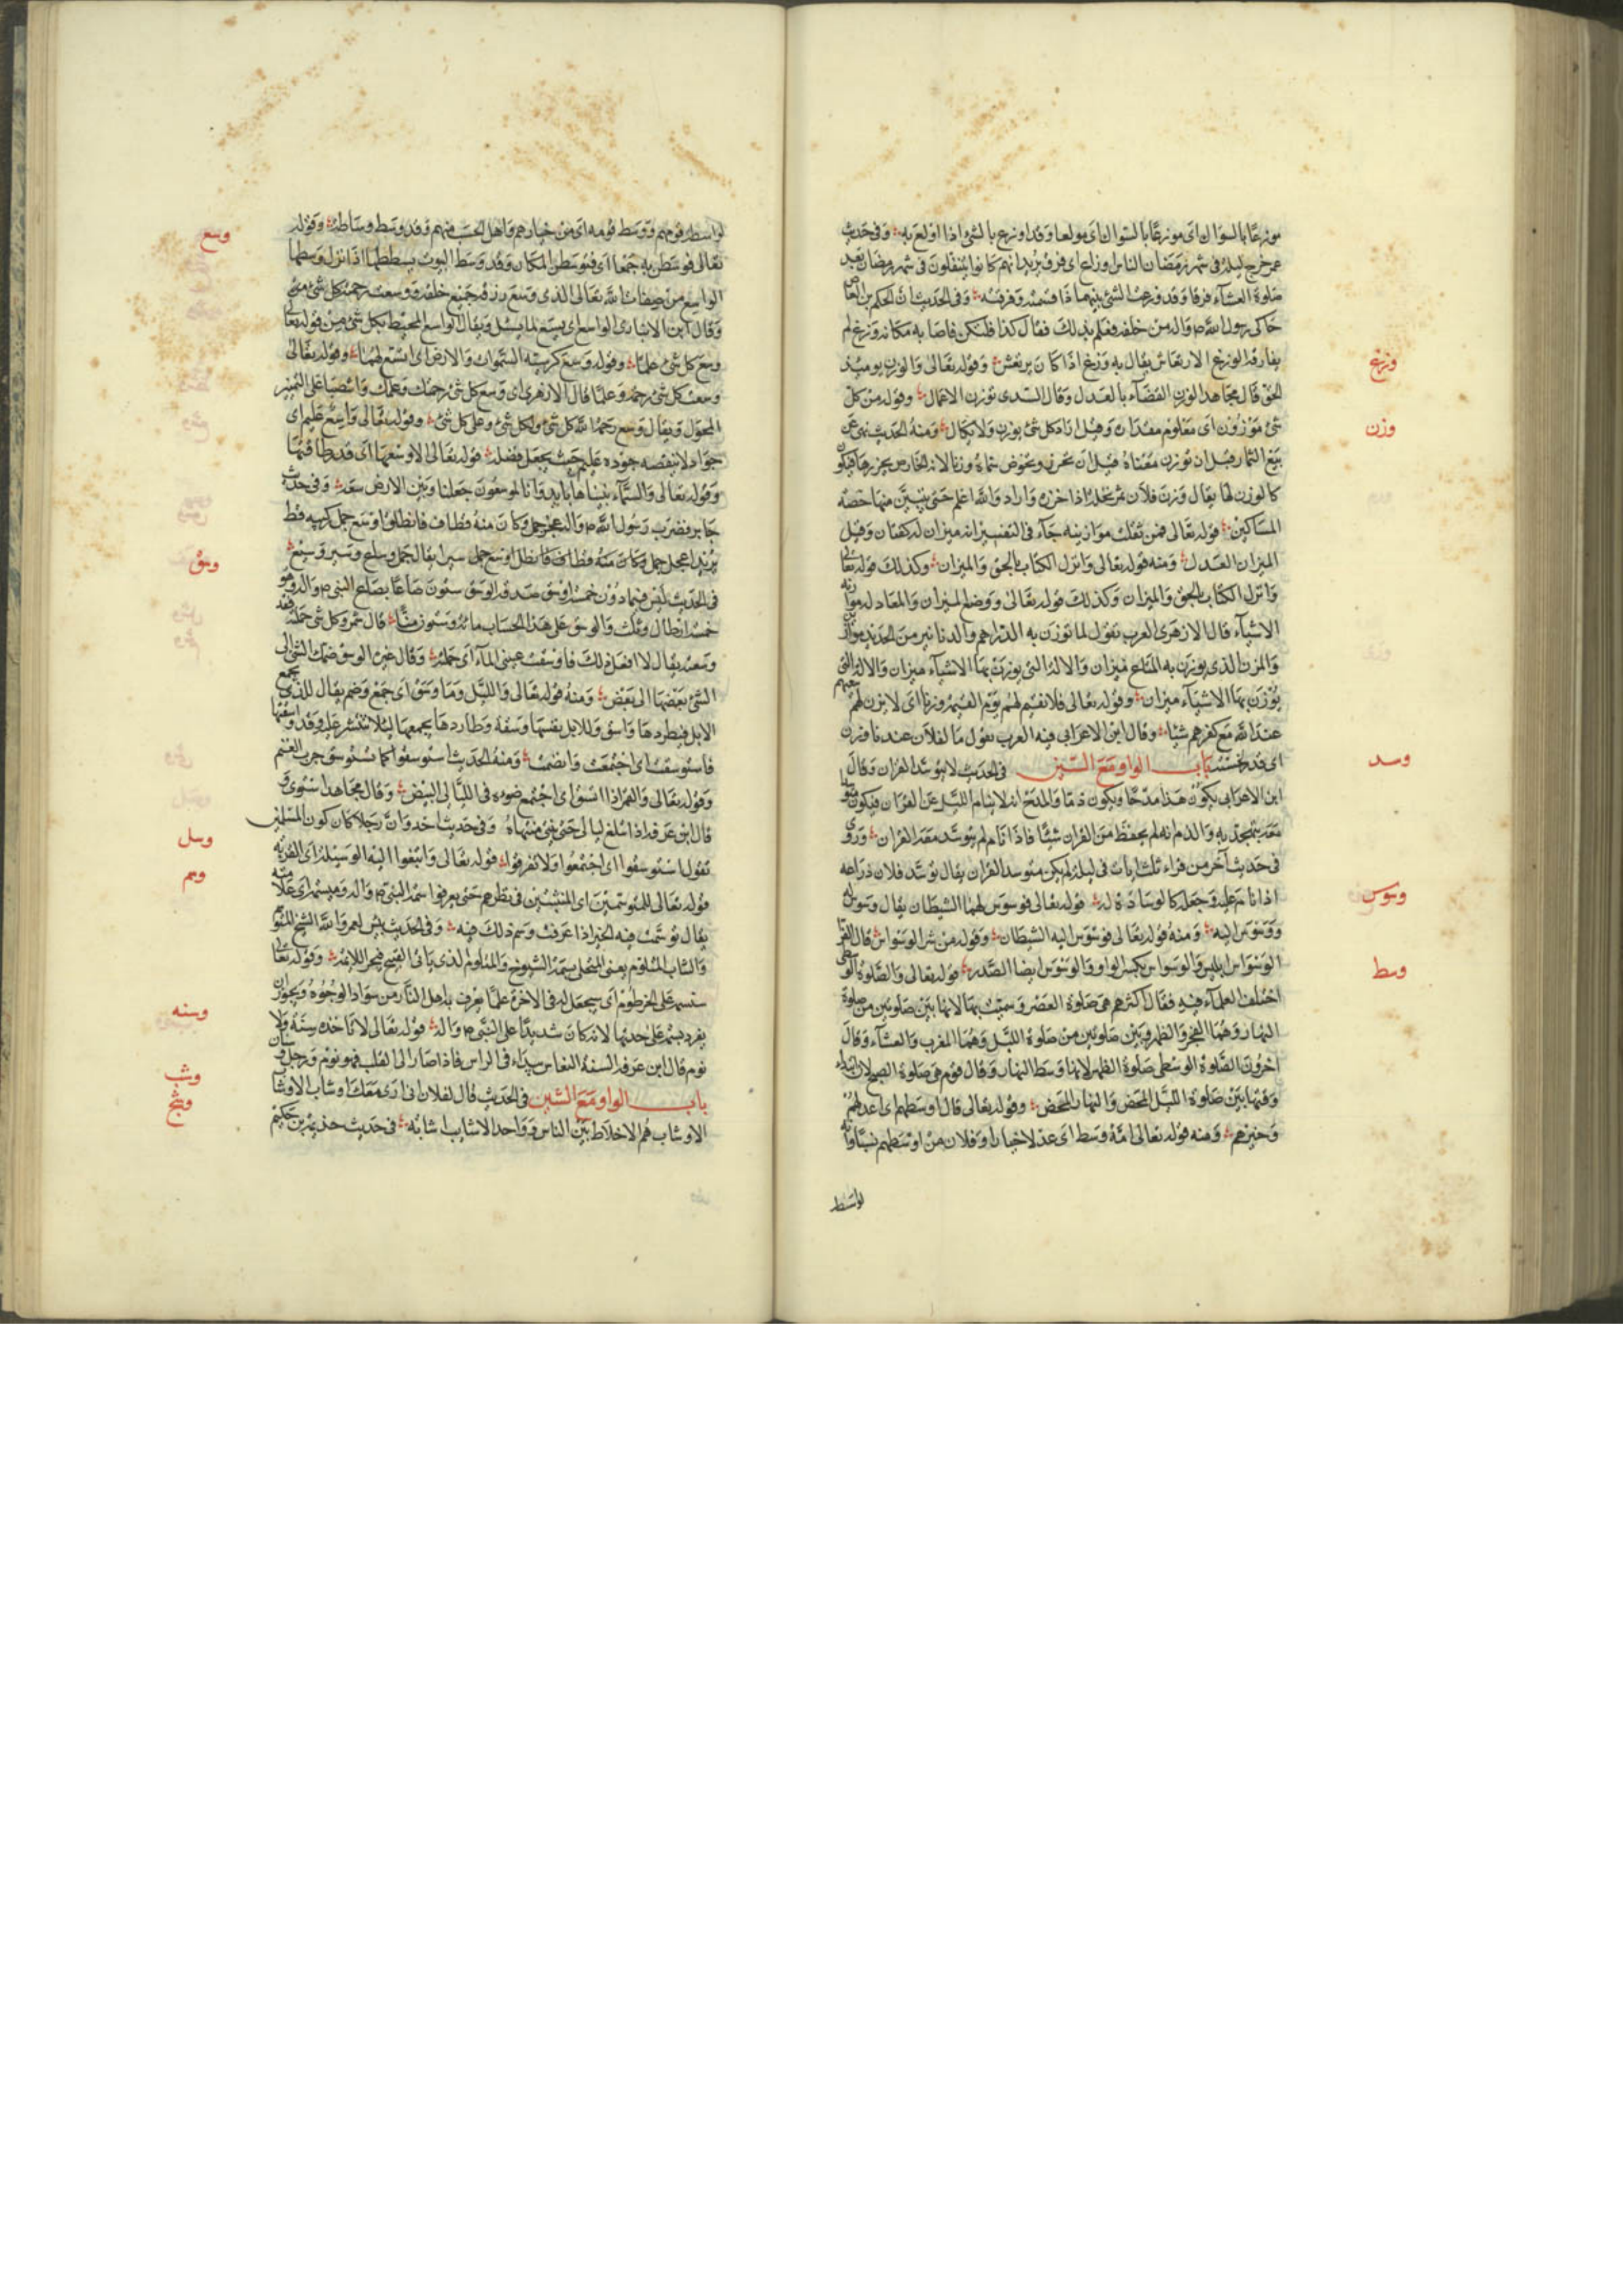 موزعا بالسواك اى مولعا وقد اوزع بالشئ اذا اولع به وفى حديث
عمر خرج ليلة فى شهر رمضان الناس اوزاع اى فرق يريد انهم كانوا يتنفلون فى شهر رمضان بعد
صلوة العشآء فرقا وقد وزعت الشئ بينهم اذا قسمته وفرقته وفى الحديث ان الحكم بن العاص
حاكى رسول الله ص واله من خلفه فعلم بذلك فقال كذا فلتكن فاصابه مكانه وزغ لم
وزغ
يفارقه الوزغ الارتعاش يقال به وزغ اذا كان يرتعش وقوله تعالى والوزن يومئذ
الحق قال مجاهد الوزن القضآء بالعدل وقال السدى توزن الاعمال وقوله من كل
وزن
شئ موزون اى معلوم مقداره وقيل اراد كل شئ يوزن ولا يكال ومنه الحديث نهى عن
بيع الثمار قبل ان توزن معناه قبل ان تحرز وتخرص سماه وزنا لان الخارص يحزرها فيكون
كالوزن لها يقال وزن فلان ثمر نخله اذا خرزه واراد والله اعلم حتى يتبين منها حصة
المساكين قوله تعالى فمن ثقلت موازينه جآء فى التفسير انه ميزان له كفتان وقيل
الميزان العدل ومنه قوله تعالى وانزل الكتاب بالحق والميزان وكذلك قوله تعالى
وانزل الكتاب بالحق والميزان وكذلك قوله تعالى ووضع الميزان والمعادلة موازنة
الاشيآء قال الازهرى العرب تقول لما توزن به الدراهم والدنانير من الحديد موازين
والمزن الذى يوزن به المتاع ميزان والالة التى يوزن بها الاشيآء ميزان والالة التى
يوزن بها الاشيآء ميزان وقوله تعالى فلا نقيم لهم يوم القيمة وزنا اى لا يزن لهم سعيهم
عند الله مع كفرهم شيئا وقال ابن الاعرابى فيه العرب تقول ما لفلان عندنا وزن
اى قدر لخسته باب الواو مع السين فى الحديث لا يتوسد القران وقال
وسد
ابن الاعرابى يكون هذا مدحا ويكون ذما والمدح انه لا ينام الليل عن القران فيكون متوسدا
معه يتهجد به والذم انه لم يحفظ من القران شيئا فاذا نام لم يتوسد معه القران وروى
فى حديث آخر من قراء ثلث ايات فى ليلة لم يكن متوسد القران يقال توسد فلان ذراعه
اذا نام عليه وجعله كالوسادة له قوله تعالى فوسوس لهما الشيطان يقال وسوس له
وسوس
ووسوس اليه ومنه قوله تعالى فوسوس اليه الشيطان وقوله من شر الوسواس قال الفرا
الوسواس ابليس والوسواس بكسر الواو والوسوس ايضا الصدر قوله تعالى والصلوة الوسطى
وسط
اختلف العلمآء فيه فقال اكثرهم هى صلوة العصر وسميت بها لانها بين صلوتين من صلوة
النهار وهما الفجر والظهر وبين صلوتين من صلوة الليل وهما المغرب والعشآء وقال
اخرون الصلوة الوسطى صلوة الظهر لانها وسط النهار وقال قوم هى صلوة الصبح لان ابتداء
وقتها بين صلوة الليل المحض والنهار المحض وقوله تعالى قال اوسطهم اى اعدلهم
وخيرهم ومنه قوله تعالى امة وسطا اى عدلا خيارا وفلان من اوسطهم نسبا وانه
لواسط
لواسطة قومهم ووسط قومه اى من خيارهم واهل الحسب منهم وقد وسط وساطة وقوله
وسع
تعالى فوسطن به جمعا اى فتوسطن المكان وقد وسط البيوت يسطها اذا نزل وسطها
الواسع من صفات الله تعالى الذى وسع رزقه جميع خلقه ووسعت رحمته كل شئ
وقال ابن الانبارى الواسع اى يسع لما يسئل ويقال الواسع المحيط بكل شئ من قوله تعالى
وسع كل شئ علما وقوله وسع كرسيه السموات والارض اى اتسع لهما وقوله تعالى
وسعت كل شئ رحمة وعلما قال الازهرى اى وسع كل شئ رحمتك وعلمك وانتصبا على التمييز
المحول ويقال وسع رحمة الله كل شئ ولكل شئ وعلى كل شئ وقوله تعالى واسع عليم اى
جواد لا ينقصه جوده عليم حيث يجعل فضله قوله تعالى الا وسعها اى قدر طاقتها
وقوله تعالى والسمآء بنيناها بايد وانا لموسعون جعلنا وبين الارض سعة وفى حديث
جابر فضرب رسول الله ص واله عجز جمل وكان منه قطاف فانطلق اوسع جمل ركبته قط
يريد اعجل جمل وكان منه قطاف فانطلق اوسع جمل سيرا يقال جمل وساع وسير وسيع
وسق
فى الحديث ليس فيما دون خمسة اوسق صدقة الوسق ستون صاعا بصاع النبى ص واله وهو
خمسة ارطال وثلث والوسق على هذا الحساب مائة وستون منا قال شمر وكل شئ حملته فقد
وسعته يقال لا افعل ذلك ما وسقت عينى المآء اى حملته وقال غيره الوسق ضمك الشئ الى
الشئ بعضها الى بعض ومنه قوله تعالى والليل وما وسق اى جمع وضم يقال للذى يجمع
الابل فيطردها واسق وللابل نفسها وسقة وطاردها يجمعها لئلا تنتشر عليه وقد وسقتها
فاستوسقت اى اجتمعت وانضمت ومنه الحديث استوسقوا كما تستوسق جرب الغنم
وقوله تعالى والقمر اذا اتسق اى اجتمع ضوءه فى الليالى البيض وقال مجاهد استوى
قال ابن عرفة اذا بلغ ليالى حتى منتهاه وفى حديث احد وان رجلا كان كون المسلمين
وسل
تقول استوسقوا اى اجتمعوا ولا تفرقوا قوله تعالى وابتغوا اليه الوسيلة اى القربة
وسم
قوله تعالى للمتوسمين اى المتثبتين فى نظرهم حتى يعرفوا سمة النبى ص واله وميسمه اى علامته
يقال توسمت فيه الخير اذا عرفت وسم ذلك فيه وفى الحديث بئس لعمر والله الشيخ المتوسم
والشاب المتلوم يعنى المتحلى بسمة الشيوخ والمتلوم الذى ياتى القبيح فيجر اللائمة وقوله تعالى
سنسمه على الخرطوم اى سيجعل له فى الاخرة علما يعرف به اهل النار من سواد الوجوه ويجوز ان
يفرد بسمة على حدتها لانه كان شديدا على النبى ص واله قوله تعالى لا تاخذه سنة ولا
وسنه
نوم قال ابن عرفة السنة النعاس يبداء فى الراس فاذا صار الى القلب فهو نوم ورجل وسنان
باب الواو مع الشين فى الحديث قال لفلان انى ارى معك اوشابا الاوشا
وشب
الاوشاب هم الاخلاط بين الناس وواحد الاشايب اشابة فى حديث خذيمة بن حكيم
وشج